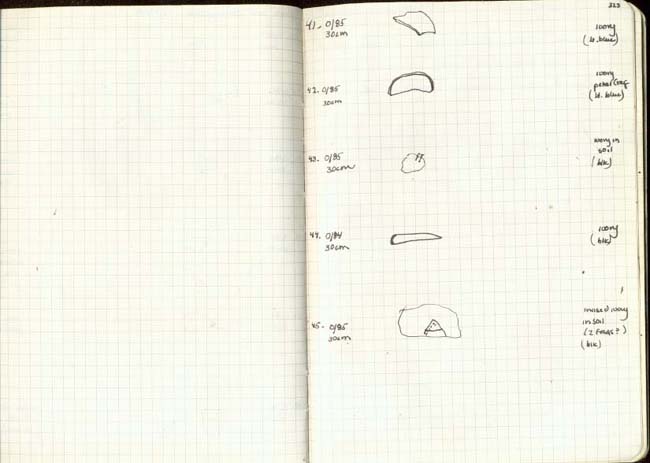 223
41. 0/85
30cm
ivory
(lt. blue)
42. 0/85
30cm
ivory
petal frag
(lt. blue)
43. 0/85
30cm
ivory in
soil
(blk)
44. 0/84
30cm
ivory
(blk)
45. 0/85
30cm
incised ivory
in soil
(2 frags?)
(blk)